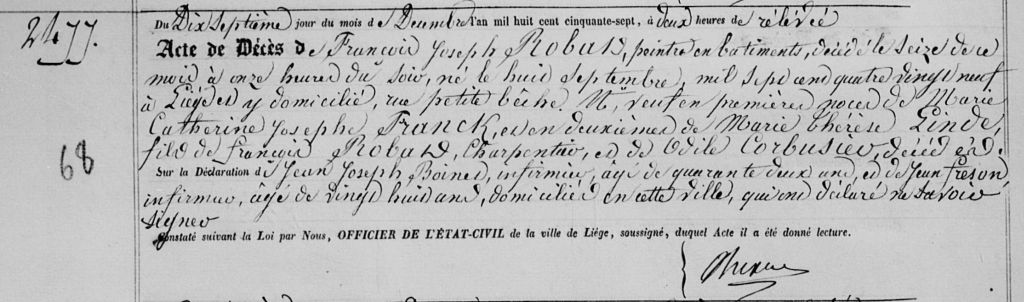 2477.
Du Dix Septième jour du mois de Décembre l'an mil huit cent cinquante-sept, à deux heures de rélévée
Acte de Décès de François Joseph Robat, peintre en batiments, décédé le seize de ce
mois à onze heures du soir, né le huit Septembre, mil sept cent quatre vingt neuf
à Liége et y domicilié, rue petite bêche. N.º, veuf en premières noces de Marie
Catherine Joseph Franck, et en deuxièmes de Marie thérèse Linde,
fils de françois Robat, Charpentier, et de Odile Corbusier, décédés.
68
Sur la Déclaration de Jean Joseph Boinet, infirmier, âgé de quarante deux ans, et de Jean freson,
infirmier, âgé de vingt huit ans, domiciliés en cette ville, qui ont déclaré ne savoir
signer
Constaté suivant la Loi par Nous, OFFICIER DE L'ÉTAT-CIVIL de la ville de Liége, soussigné, duquel Acte il a été donné lecture.